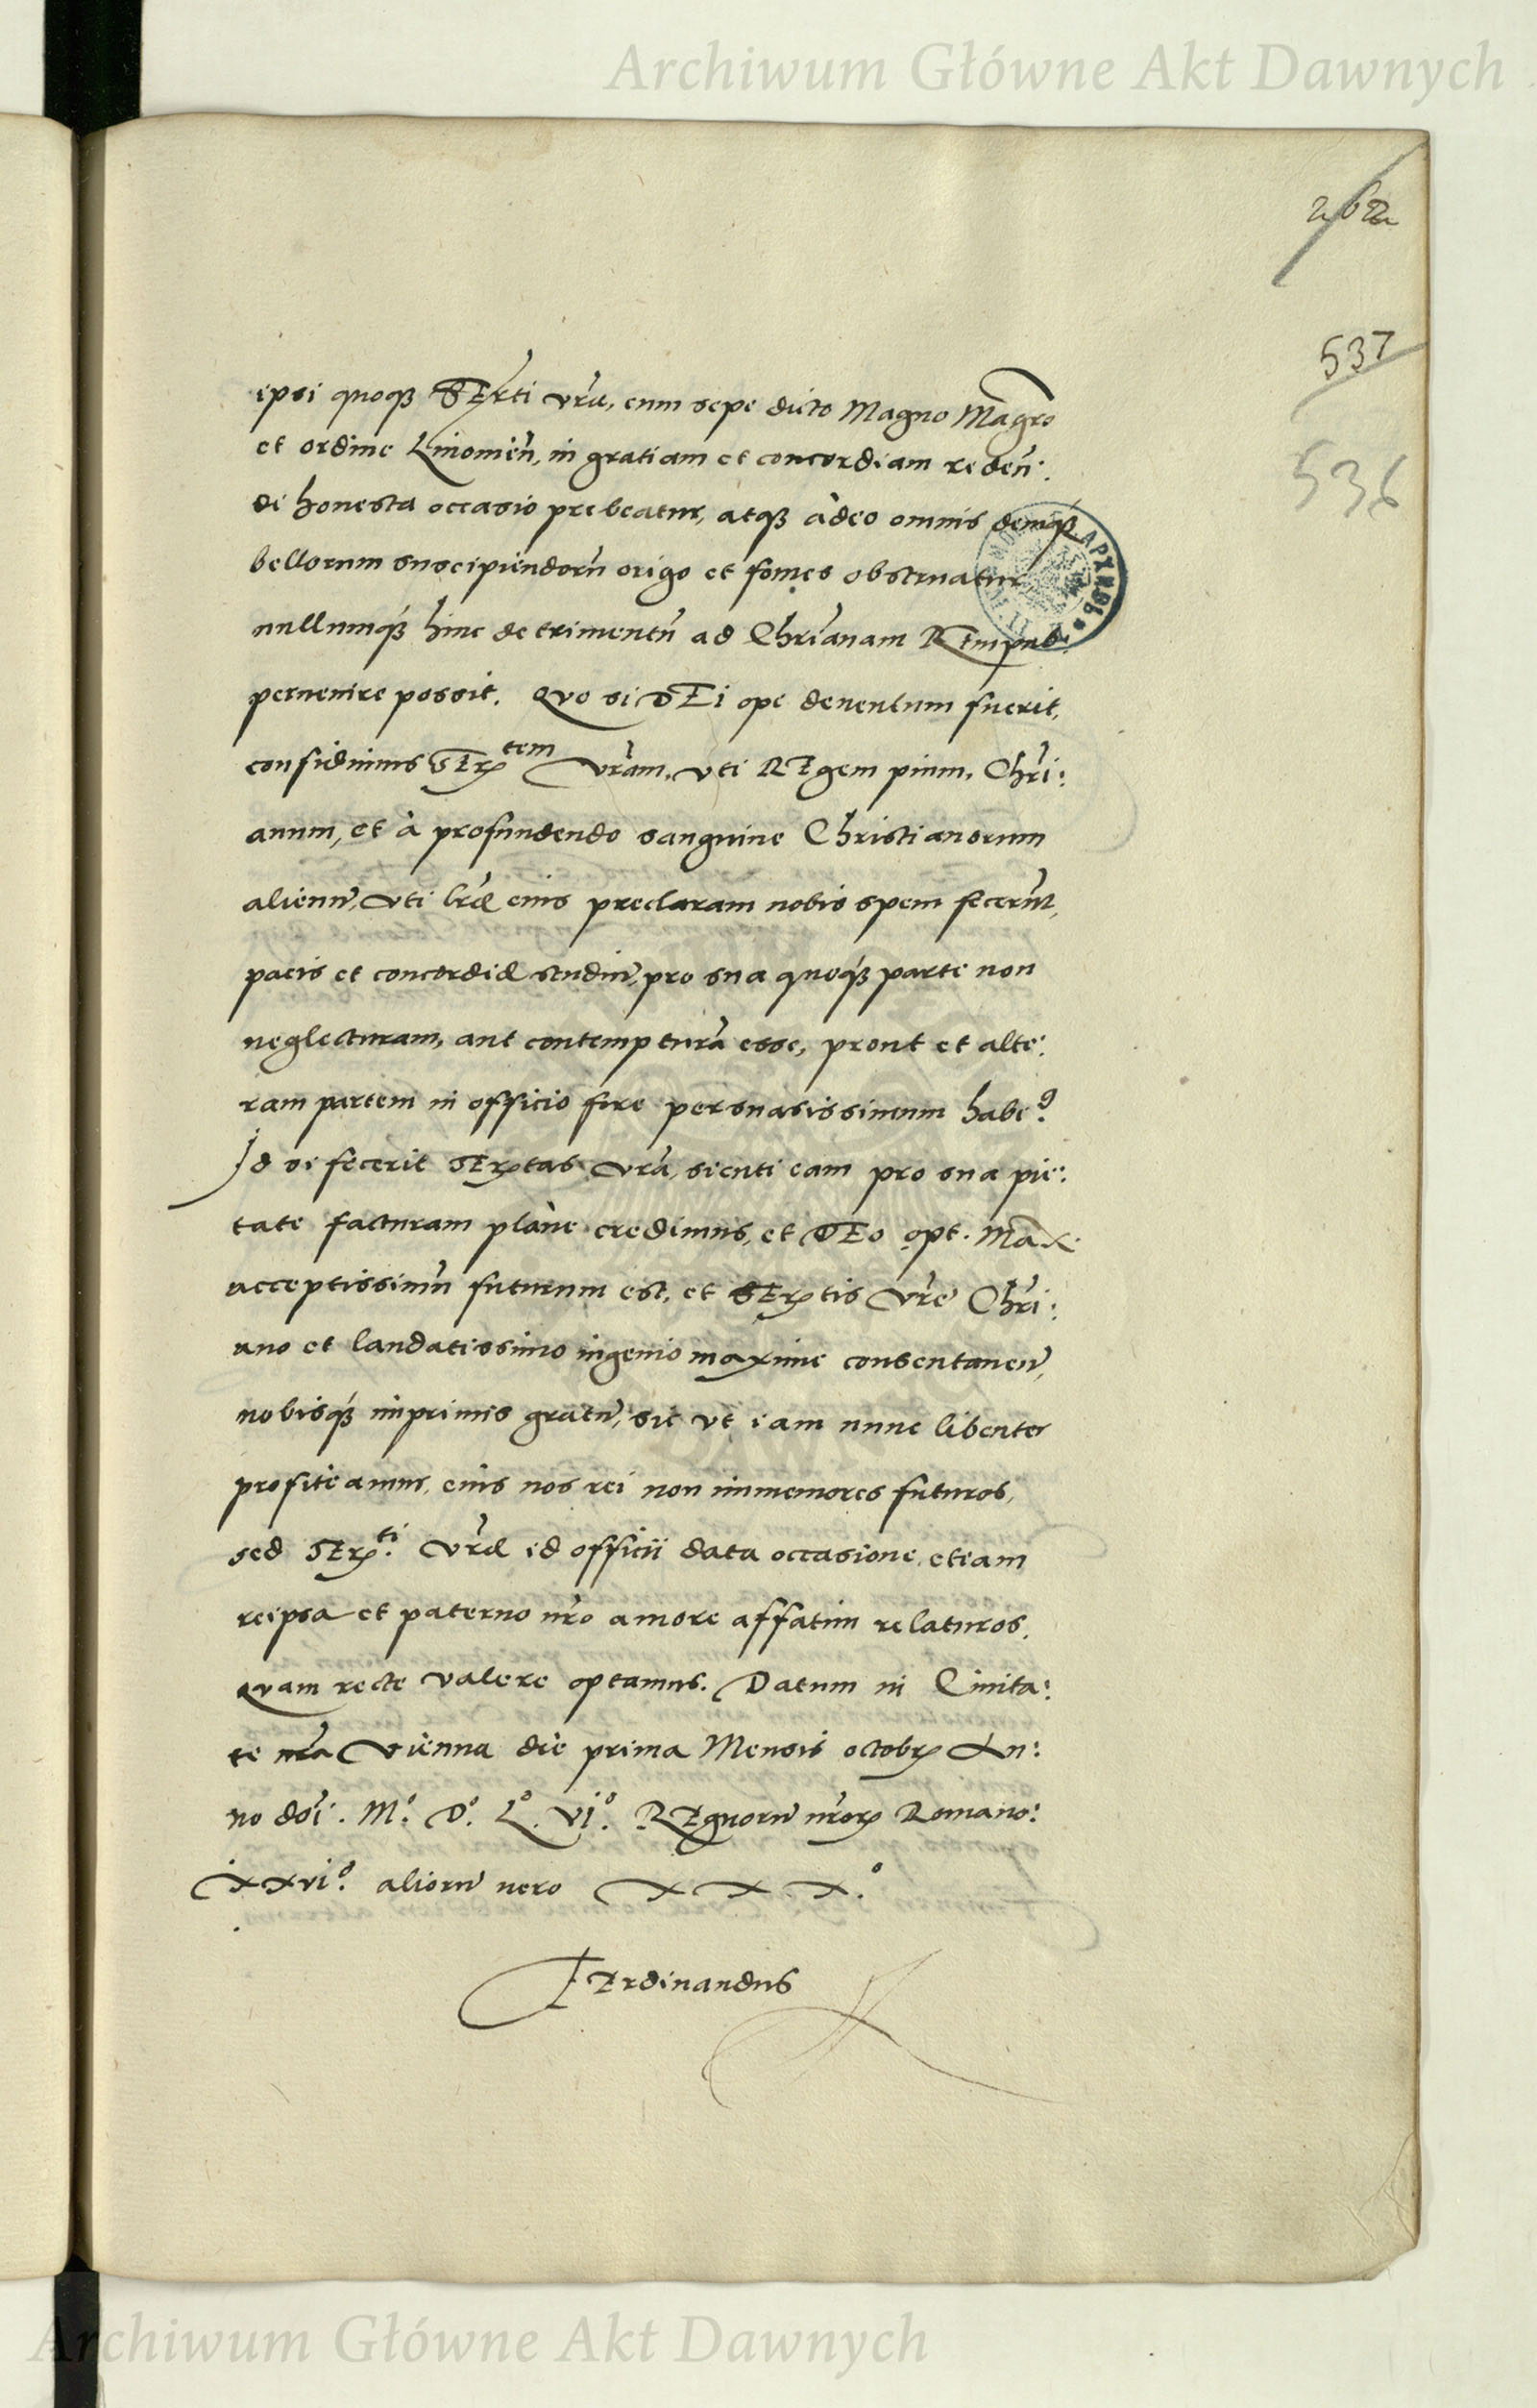 Archiwum Główne Akt Dawnych
262
537
536
ipsi quoqȝ SErti vrã, cum sepe dicto Magno Magrõ
et ordine Liuonieñ, in gratiam et concordiam redeñ:
di honesta occasio prebeatur, atqȝ adeo omnis deniqȝ
bellorum suscipiendorũ origo et fomes obstruatur
nullumqȝ hinc detrimentũ ad Chrĩanam REmpub:
peruenire possit. Quo si DEi ope deuentum fuerit,
confidimus SEr^tem Vrãm, vti REgem pium, Chrĩ:
anum, et à profundendo sanguine Christianorum
alienũ, vti lrę̃ eius preclaram nobis spem fecerũt,
pacis et concordię studiũ, pro sua quoqȝ parte non
neglecturam, aut contempturã esse, prout et alte:
ram partem in officio fore persuasissimum habem9.
Id si fecerit SErtas vrã, sicuti eam pro sua pie:
tate facturam planè credimus, et DEo opt. Max.
acceptissimũ futurum est, et SErtis Vrẽ Chrĩ:
ano et laudatissimo ingenio maxime consentaneũ,
nobisqȝ imprimis gratũ, sic vt iam nunc libenter
profiteamur, eius nos rei non immemores futuros,
sed SEr^ti. Vrę̃ id officii data occasione, etiam
reipsa et paterno nrõ amore affatim relaturos.
Quam recte valere optamus. Datum in Ciuita:
te nrã Vienna die prima Mensis octobr An:
no doĩ. M.° D.° L.° vi.° REgnorũ nrõr Romano:
xxvi.° aliorũ uero xxx.°
FErdinandus
Archiwum Główne Akt Dawnych